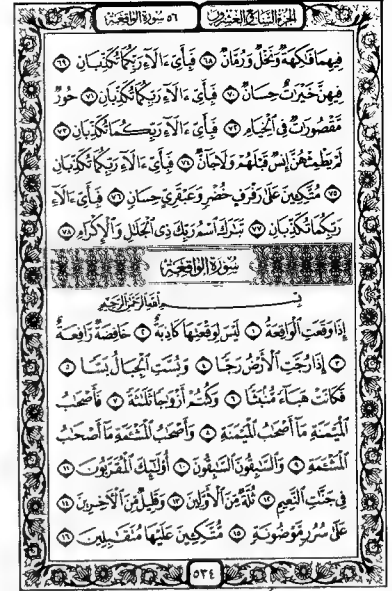 ٥٦ سورة الواقعة الجزء السابع والعشرون
فِيهِمَا فَٰكِهَةٌ وَنَخْلٌ وَرُمَّانٌ ٦٨ فَبِأَىِّ ءَالَآءِ رَبِّكُمَا تُكَذِّبَانِ ٦٩
فِيهِنَّ خَيْرَٰتٌ حِسَانٌ ٧٠ فَبِأَىِّ ءَالَآءِ رَبِّكُمَا تُكَذِّبَانِ ٧١ حُورٌ
مَّقْصُورَٰتٌ فِى ٱلْخِيَامِ ٧٢ فَبِأَىِّ ءَالَآءِ رَبِّكُمَا تُكَذِّبَانِ ٧٣
لَمْ يَطْمِثْهُنَّ إِنسٌ قَبْلَهُمْ وَلَا جَآنٌّ ٧٤ فَبِأَىِّ ءَالَآءِ رَبِّكُمَا تُكَذِّبَانِ
٧٥ مُتَّكِـِٔينَ عَلَىٰ رَفْرَفٍ خُضْرٍ وَعَبْقَرِىٍّ حِسَانٍ ٧٦ فَبِأَىِّ ءَالَآءِ
رَبِّكُمَا تُكَذِّبَانِ ٧٧ تَبَٰرَكَ ٱسْمُ رَبِّكَ ذِى ٱلْجَلَٰلِ وَٱلْإِكْرَامِ ٧٨
سُورَةُ الوَاقِعَةِ
بِسْمِ ٱللَّهِ ٱلرَّحْمَٰنِ ٱلرَّحِيمِ
إِذَا وَقَعَتِ ٱلْوَاقِعَةُ ١ لَيْسَ لِوَقْعَتِهَا كَاذِبَةٌ ٢ خَافِضَةٌ رَّافِعَةٌ
٣ إِذَا رُجَّتِ ٱلْأَرْضُ رَجًّا ٤ وَبُسَّتِ ٱلْجِبَالُ بَسًّا ٥
فَكَانَتْ هَبَآءً مُّنۢبَثًّا ٦ وَكُنتُمْ أَزْوَٰجًا ثَلَٰثَةً ٧ فَأَصْحَٰبُ
ٱلْمَيْمَنَةِ مَآ أَصْحَٰبُ ٱلْمَيْمَنَةِ ٨ وَأَصْحَٰبُ ٱلْمَشْـَٔمَةِ مَآ أَصْحَٰبُ
ٱلْمَشْـَٔمَةِ ٩ وَٱلسَّٰبِقُونَ ٱلسَّٰبِقُونَ ١٠ أُو۟لَٰٓئِكَ ٱلْمُقَرَّبُونَ ١١
فِى جَنَّٰتِ ٱلنَّعِيمِ ١٢ ثُلَّةٌ مِّنَ ٱلْأَوَّلِينَ ١٣ وَقَلِيلٌ مِّنَ ٱلْءَاخِرِينَ ١٤
عَلَىٰ سُرُرٍ مَّوْضُونَةٍ ١٥ مُّتَّكِـِٔينَ عَلَيْهَا مُتَقَٰبِلِينَ ١٦
٥٣٤